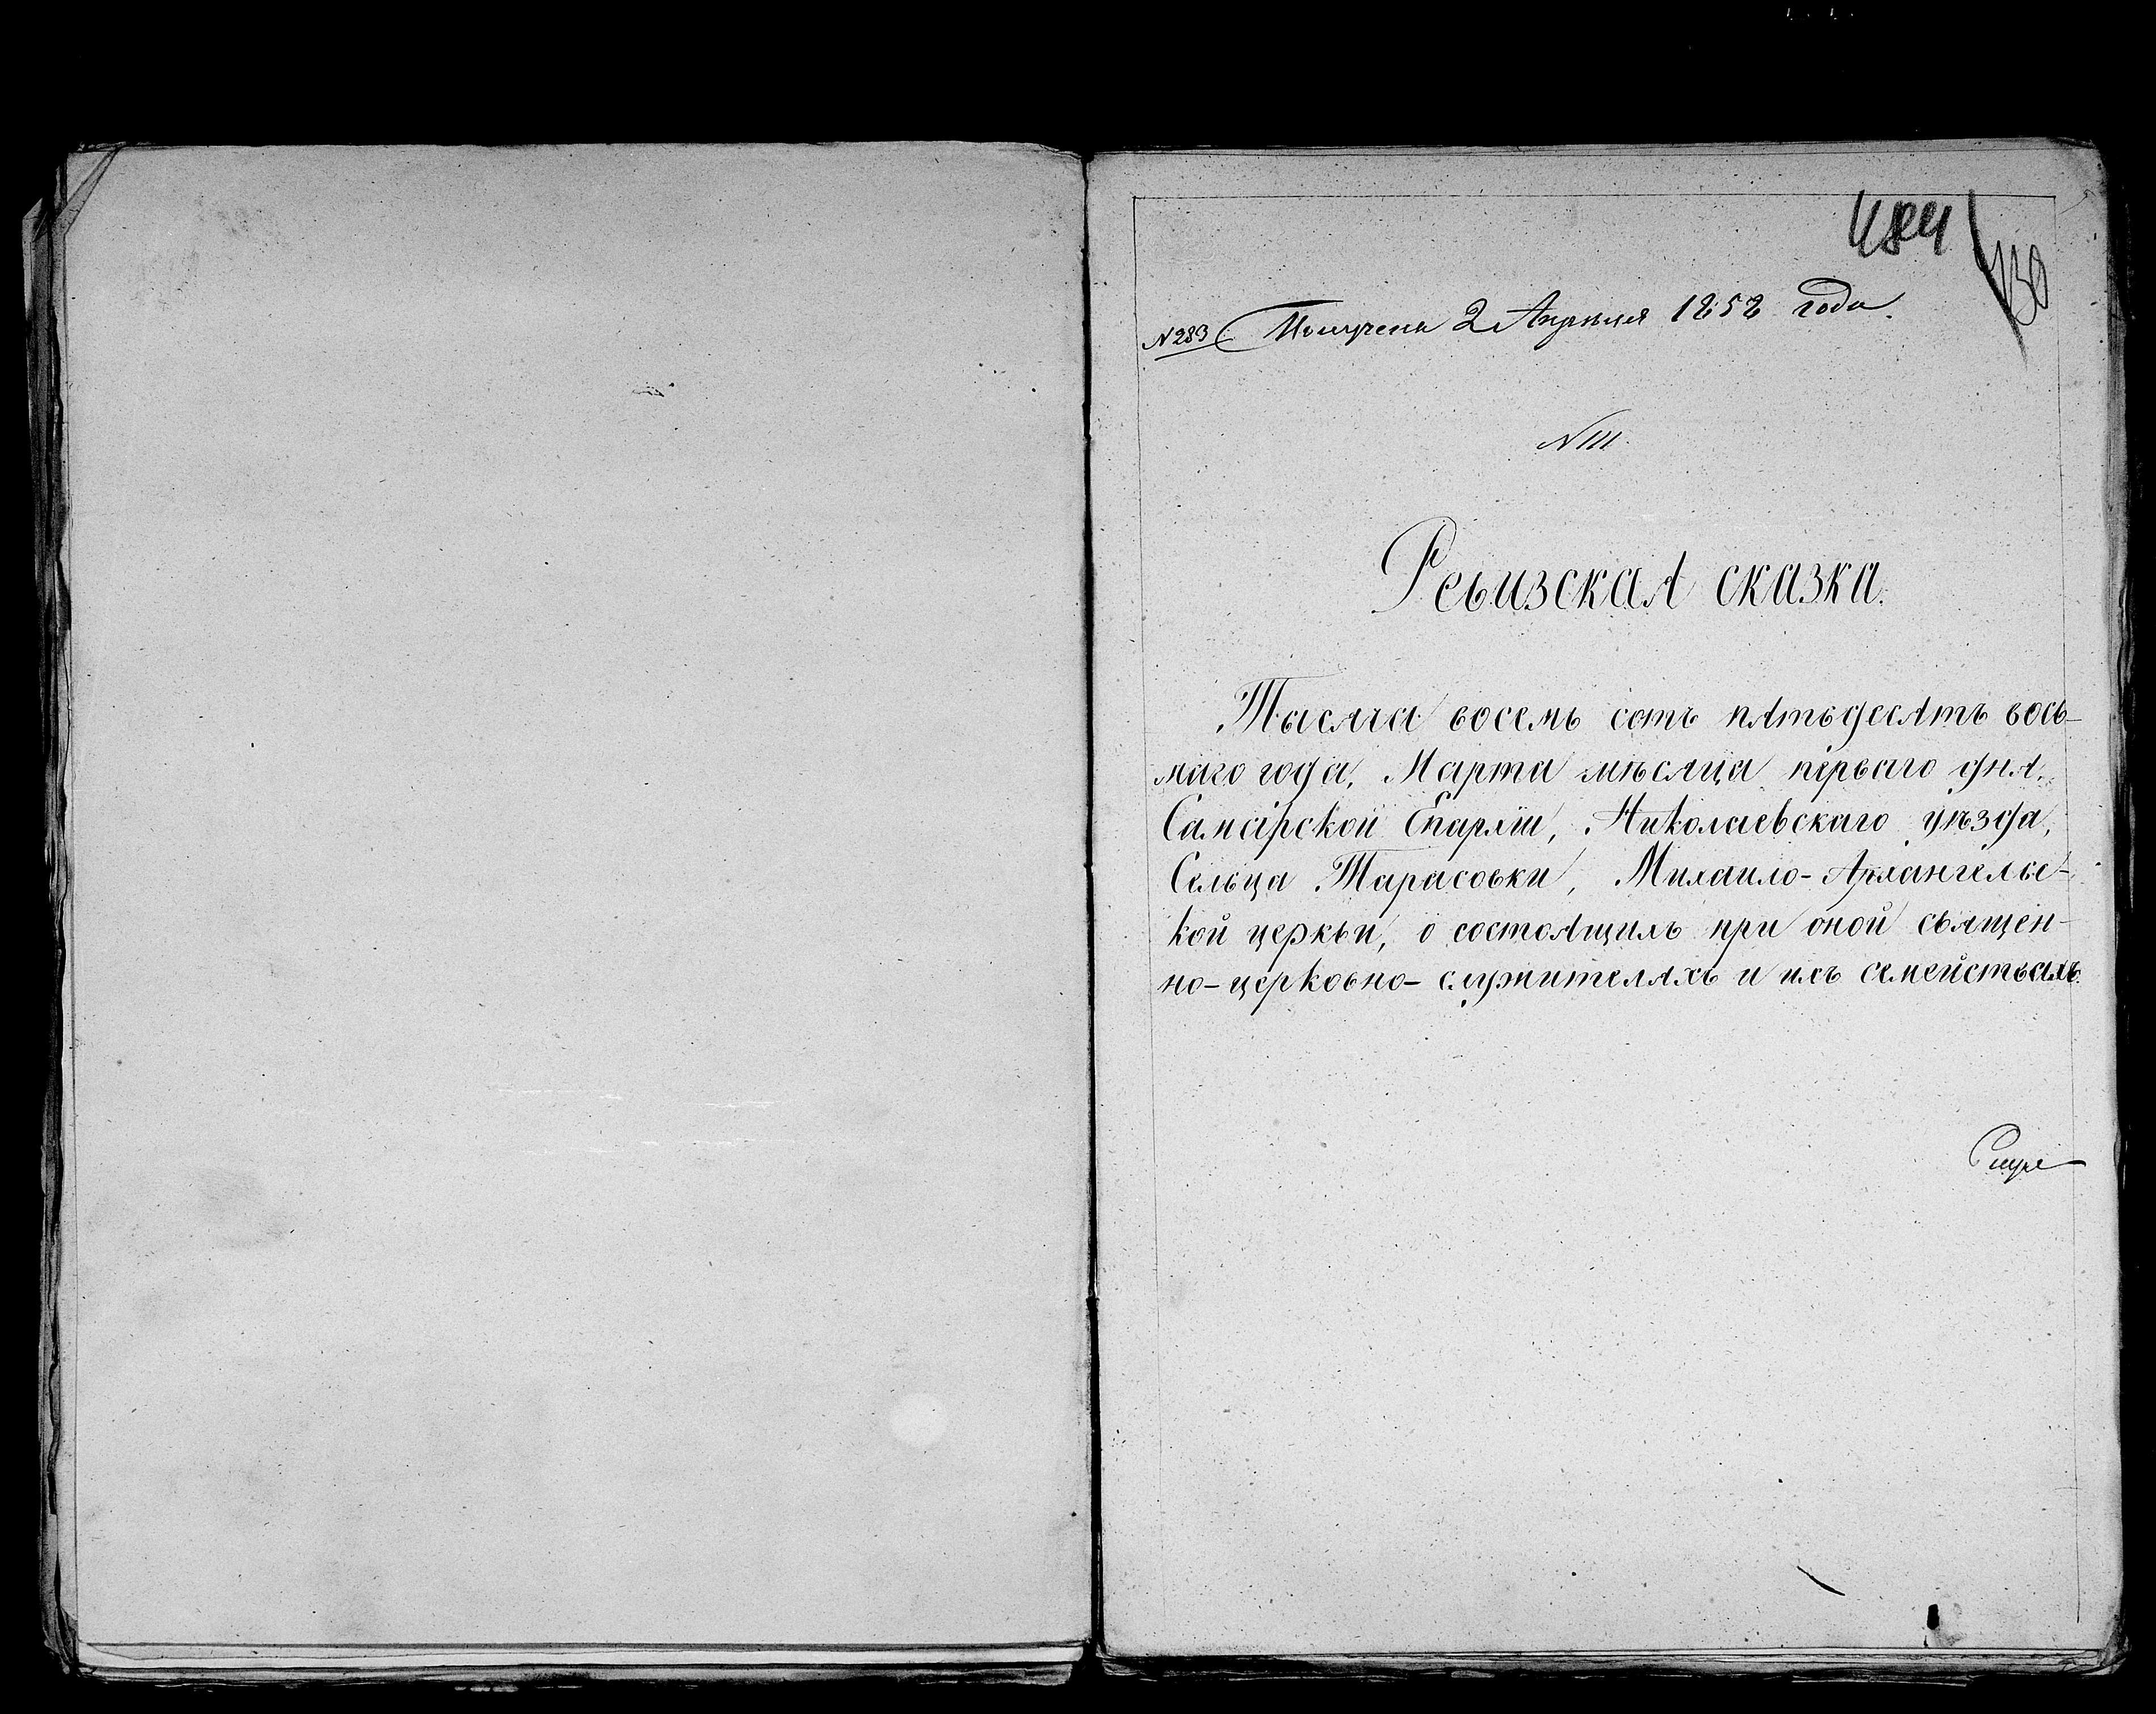 484
130
N 283 Получена 2 Апрѣля 1858 года.
N 111.
Ревизская сказка.
Тысяча восемь сотъ пятьдесятъ вось-
маго года, Марта мѣсяца перваго дня.
Самарской Епархіи, Николаевскаго уѣзда,
Сельца Тарасовки, Михаило-Архангельс-
кой церкви, о состоящихъ при оной священ-
но-церковно-служителяхъ и ихъ семействахъ.